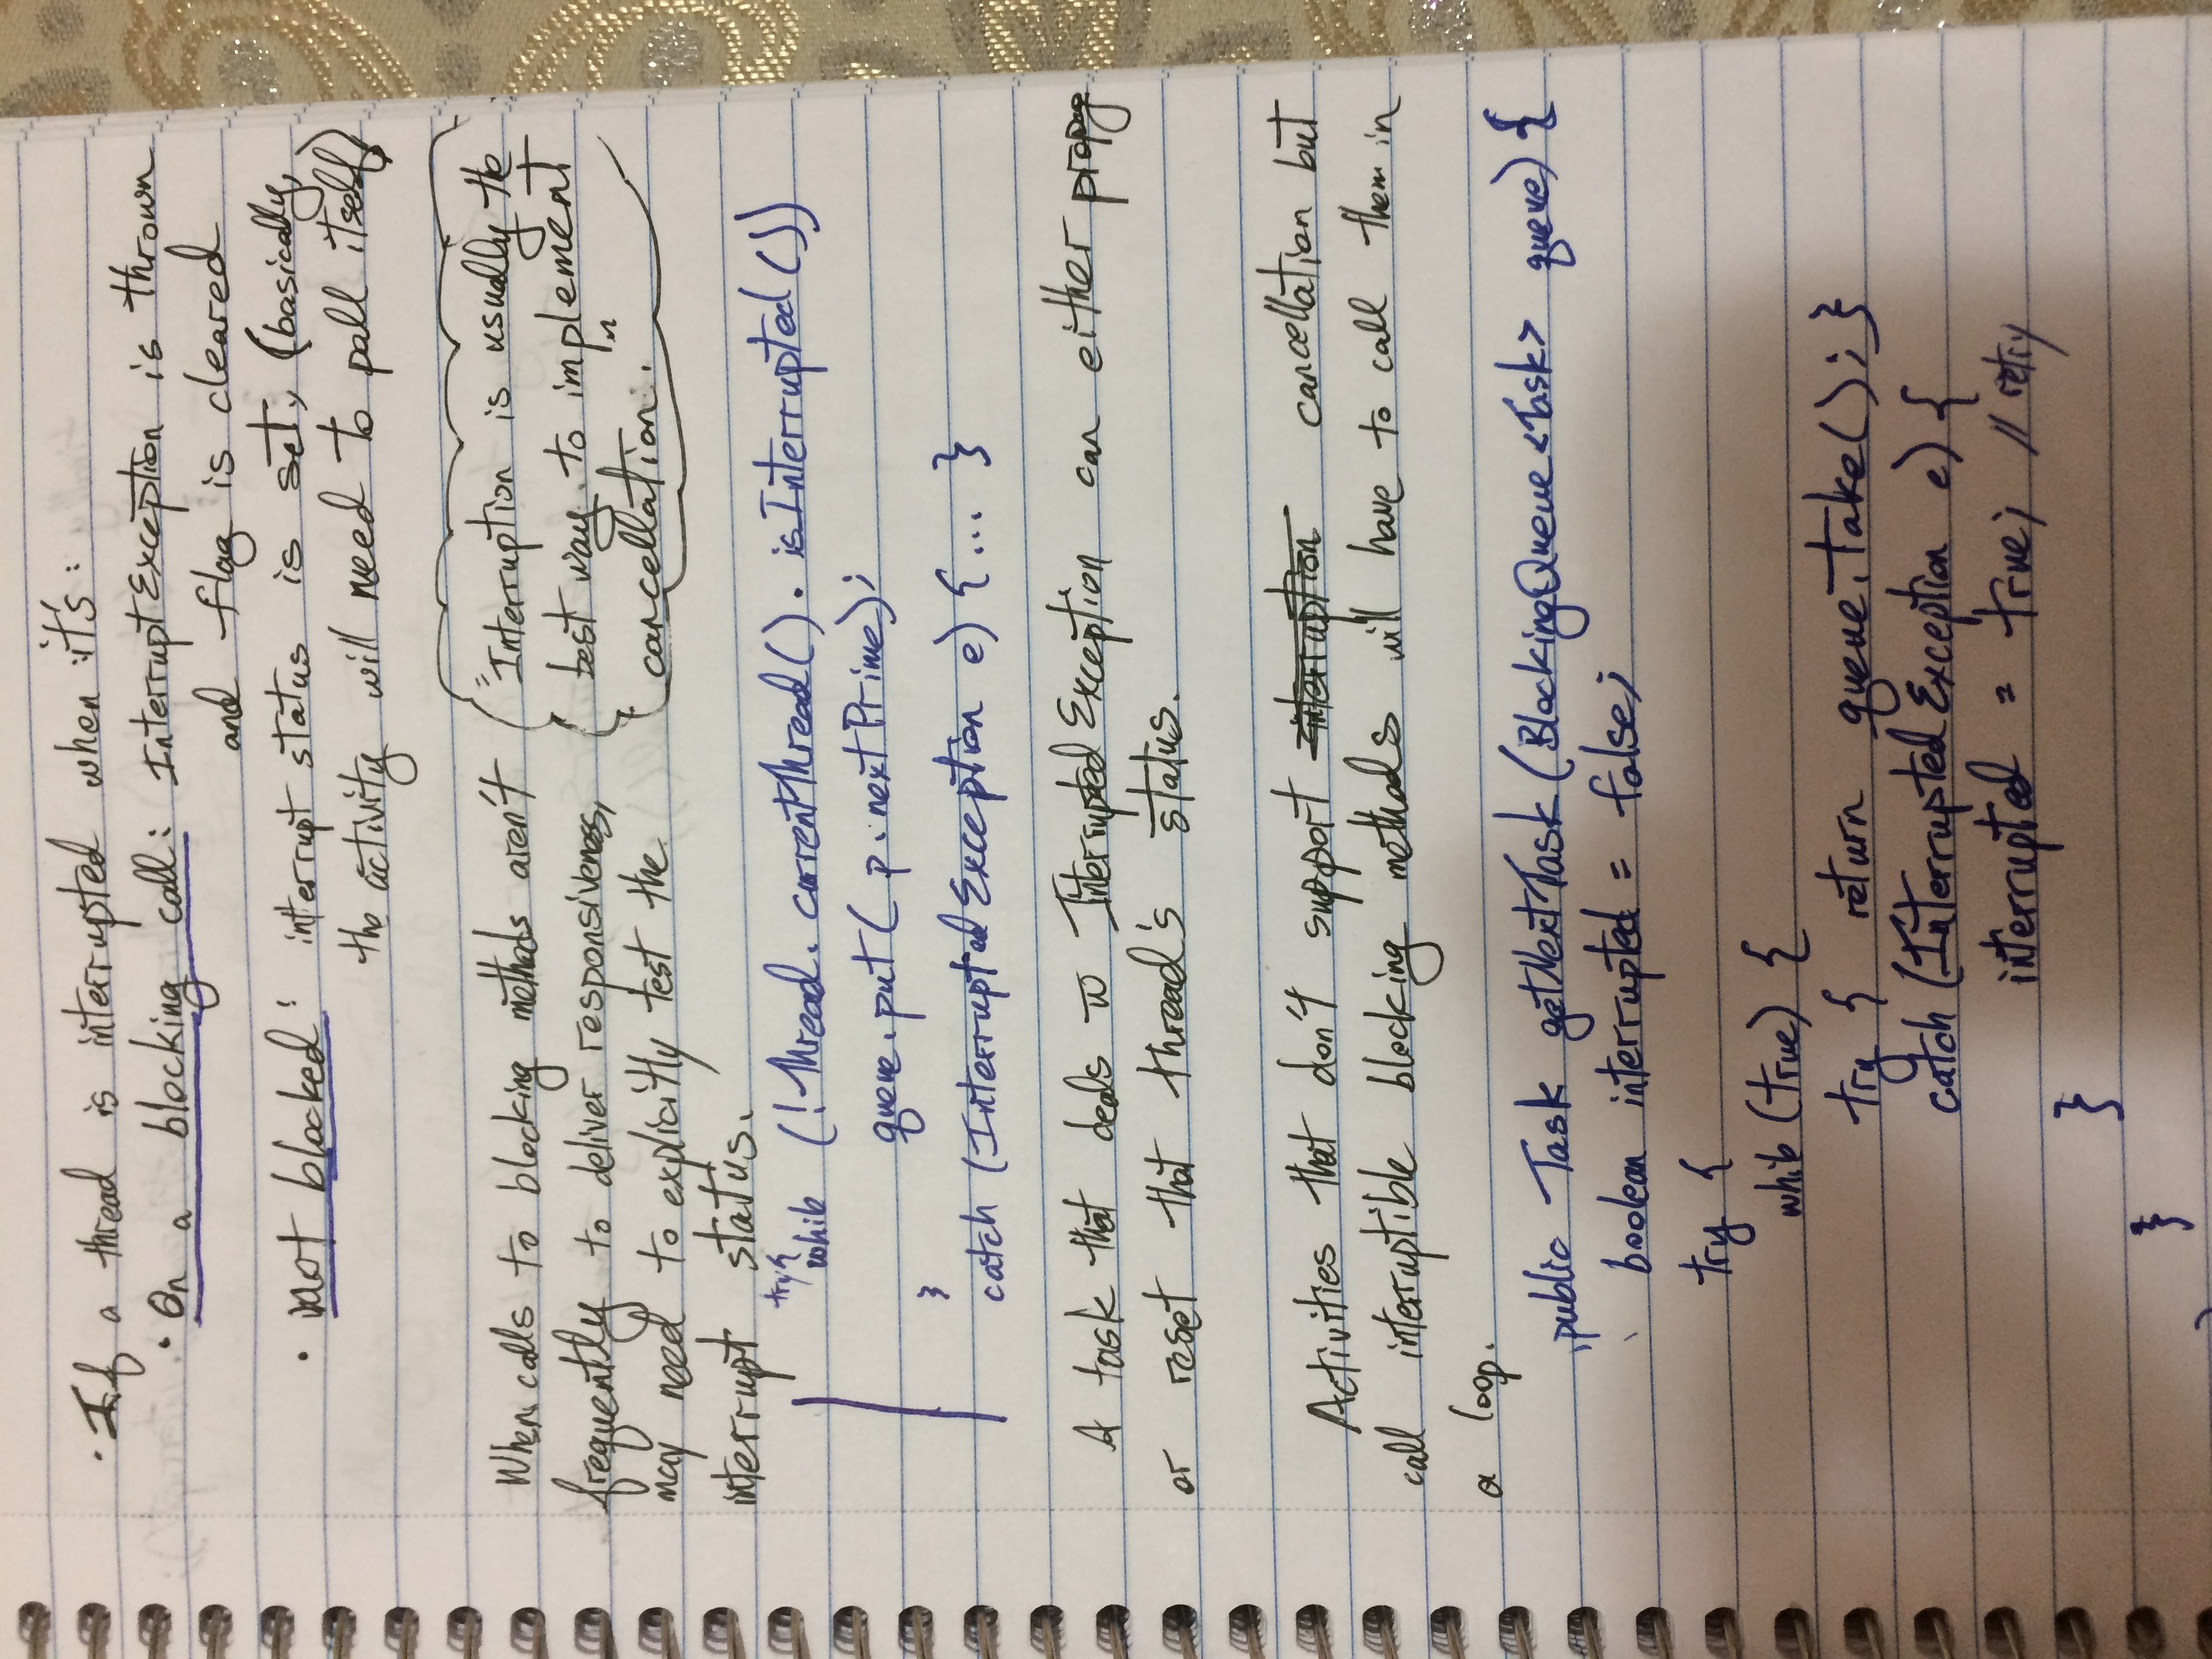 · If a thread is interrupted when it's:
· On a blocking call: InterruptException is thrown
and flag is cleared
· not blocked: interrupt status is set, (basically,
the activity will need to poll itself)
When calls to blocking methods aren't
frequently to deliver responsiveness,
may need to explicitly test the
interrupt status.
"Interruption is usually the
best way to implement
cancellation."
try{
while (!Thread.currentThread().isInterrupted())
queue.put(p.nextPrime);
}
catch (InterruptedException e) {... }
A task that deals w InterruptedException can either propag
or reset that thread's status.
Activities that don't support interruption cancellation but
call interruptible blocking methods will have to call them in
a loop.
public Task getNextTask(BlockingQueue<Task> queue) {
boolean interrupted = false;
try {
while (true) {
try { return queue.take(); }
catch (InterruptedException e) {
interrupted = true; // retry
}
}